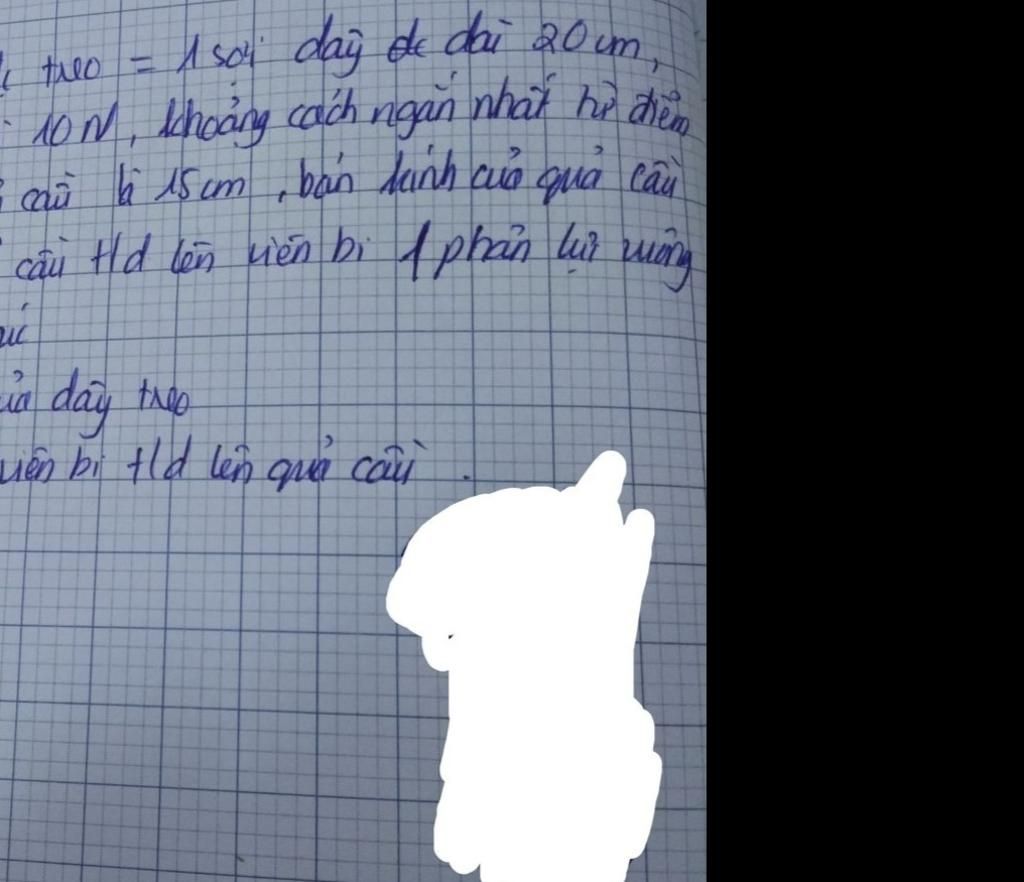 treo = 1 sợi dây dài 20 cm,
10N, khoảng cách ngắn nhất từ điểm
cầu là 15 cm, bán kính của quả cầu
cầu t/d lên viên bi 1 phản lực vuông
dây treo
viên bi t/d lên quả cầu.